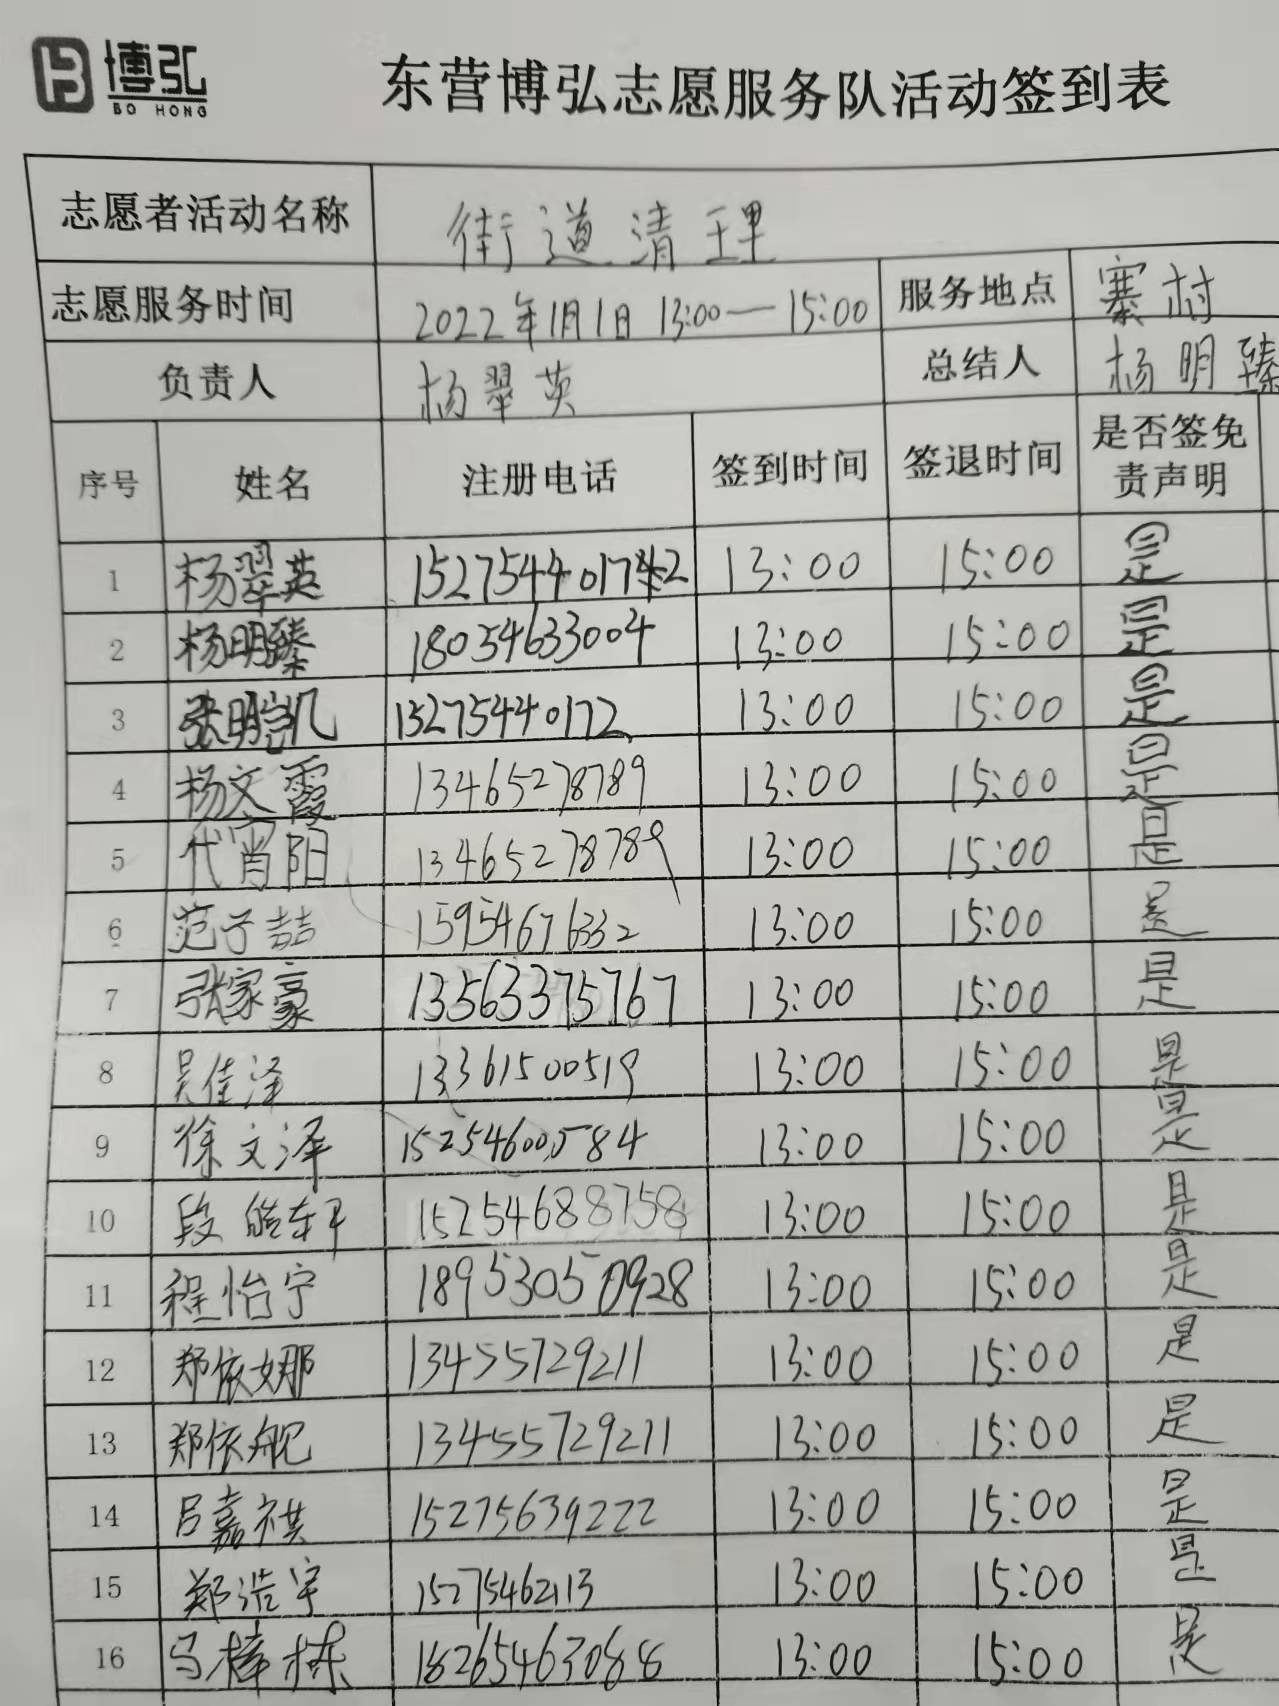 博弘
BO HONG
东营博弘志愿服务队活动签到表
志愿者活动名称 街道清理
志愿服务时间 2022年1月1日 13:00—15:00 服务地点 寨村
负责人 杨翠英 总结人 杨明臻
序号 姓名 注册电话 签到时间 签退时间 是否签免责声明
1 杨翠英 13:00 15:00 是
2 杨明臻 18054633004 13:00 15:00 是
3 张明凯 15275440172 13:00 15:00 是
4 杨文霞 13465278789 13:00 15:00 是
5 代肖阳 13465278789 13:00 15:00 是
6 范子喆 15954676332 13:00 15:00 是
7 张家豪 13563375767 13:00 15:00 是
8 吴佳泽 13361500519 13:00 15:00 是
9 徐文泽 15254600584 13:00 15:00 是
10 段皓轩 15254688758 13:00 15:00 是
11 程怡宁 18953050928 13:00 15:00 是
12 郑依娜 13455729211 13:00 15:00 是
13 郑依舰 13455729211 13:00 15:00 是
14 吕嘉祺 15275639222 13:00 15:00 是
15 郑浩宇 15275462113 13:00 15:00 是
16 马梓栋 18265463088 13:00 15:00 是